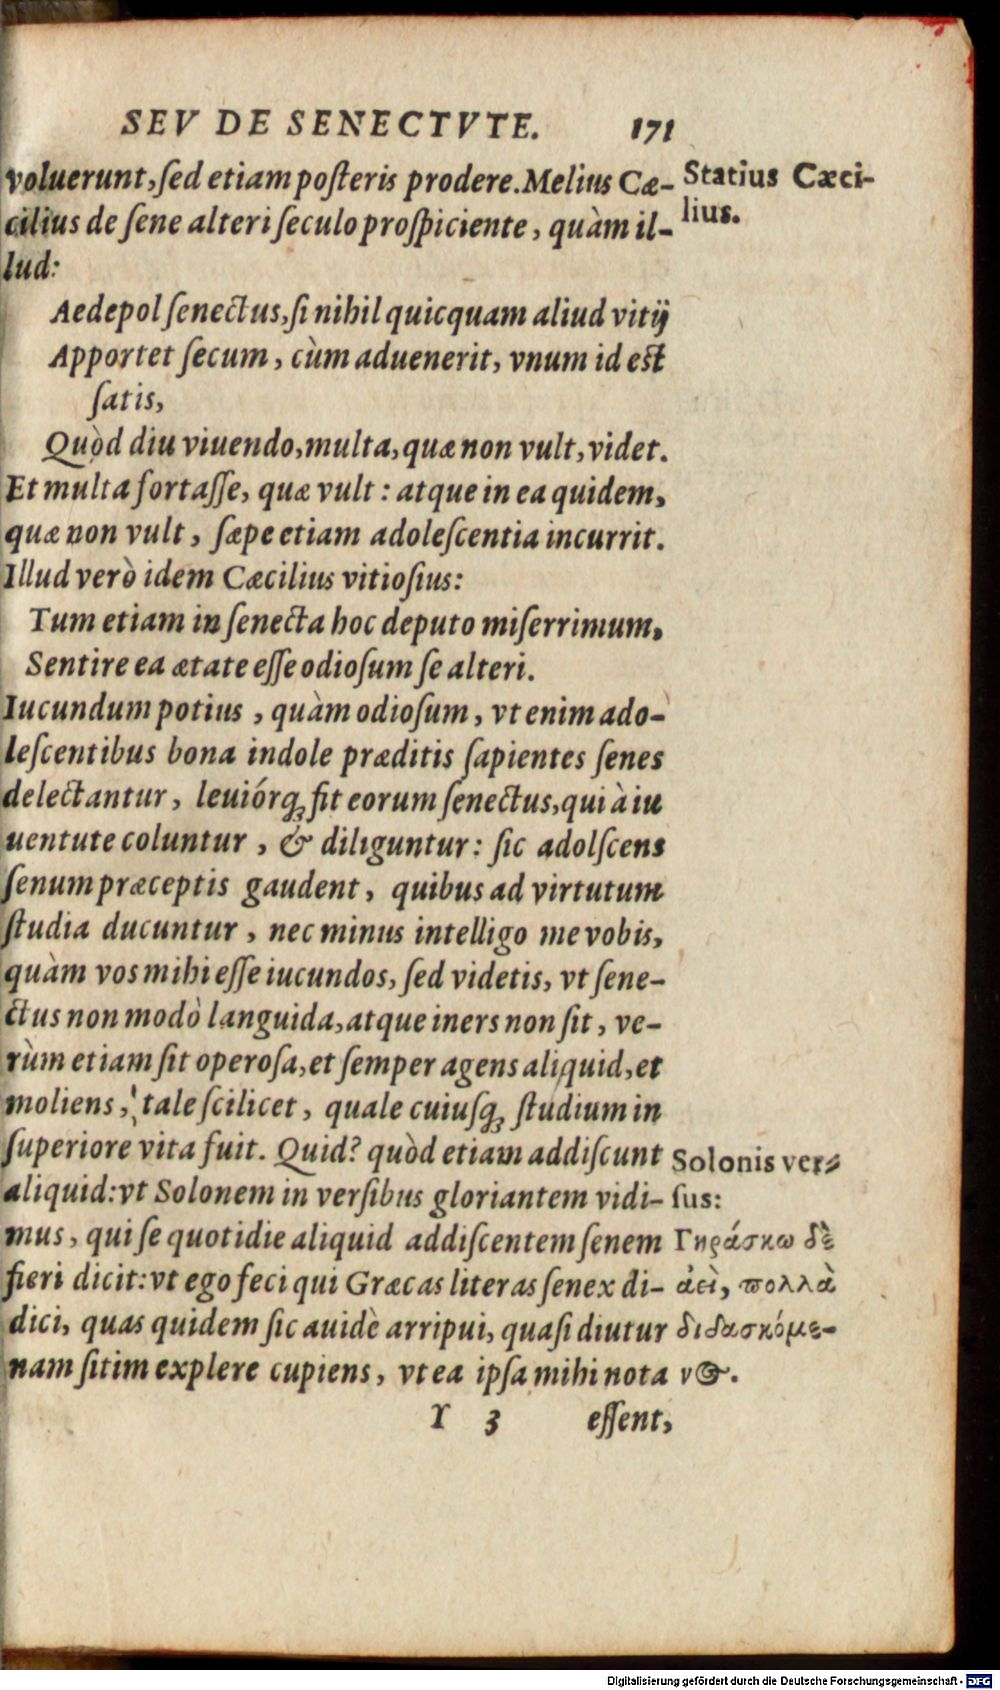 SEV DE SENECTVTE. 171
voluerunt, ſed etiam poſteris prodere. Melius Cæ-
cilius de ſene alteri ſeculo proſpiciente, quàm il-
lud:
Aedepol ſenectus, ſi nihil quicquam aliud vitij
Apportet ſecum, cùm aduenerit, vnum id est
ſatis,
Quòd diu viuendo, multa, quæ non vult, videt.
Et multa fortaſſe, quæ vult: atque in ea quidem,
quæ non vult, ſæpe etiam adoleſcentia incurrit.
Illud verò idem Cæcilius vitioſius:
Tum etiam in ſenecta hoc deputo miſerrimum,
Sentire ea ætate eſſe odioſum ſe alteri.
Iucundum potius, quàm odioſum, vt enim ado-
leſcentibus bona indole præditis ſapientes ſenes
delectantur, leuiórq; fit eorum ſenectus, qui à iu
uentute coluntur, & diliguntur: ſic adolſcens
ſenum præceptis gaudent, quibus ad virtutum
ſtudia ducuntur, nec minus intelligo me vobis,
quàm vos mihi eſſe iucundos, ſed videtis, vt ſene-
ctus non modò languida, atque iners non ſit, ve-
rùm etiam ſit operoſa, et ſemper agens aliquid, et
moliens, tale ſcilicet, quale cuiuſq; ſtudium in
ſuperiore vita fuit. Quid? quòd etiam addiſcunt
aliquid: vt Solonem in verſibus gloriantem vidi-
mus, qui ſe quotidie aliquid addiſcentem ſenem
fieri dicit: vt ego feci qui Græcas literas ſenex di-
dici, quas quidem ſic auidè arripui, quaſi diutur
nam ſitim explere cupiens, vt ea ipſa mihi nota
Y 3 eſſent,
Statius Cæci-
lius.
Solonis ver-
ſus:
Γηράσκω δὲ
ἀεὶ, πολλὰ
διδασκόμε-
νος.
Digitalisierung gefördert durch die Deutsche Forschungsgemeinschaft - DFG